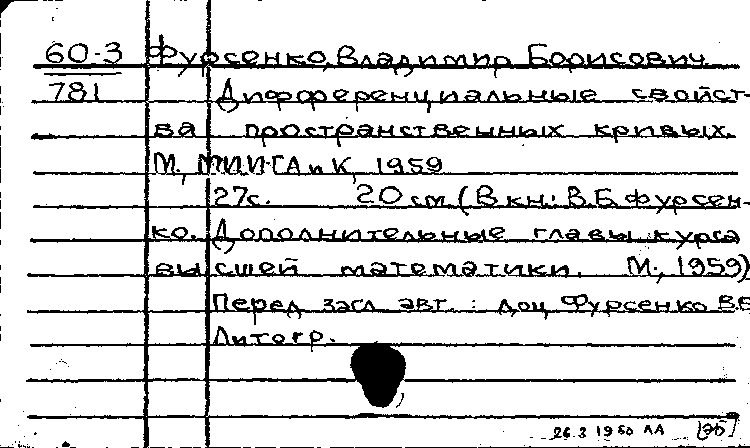 60-3 Фурсенко, Владимир Борисович
781 Дифференциальные свойст-
ва пространственных кривых.
М., МИИГАиК, 1959
27с. 20 см (В кн: В.Б Фурсен-
ко. Дополнительные главы курса
высшей математики. М., 1959)
Перед загл авт : доц Фурсенко В.Б
Литогр.
26 3 1960 ЛЛ